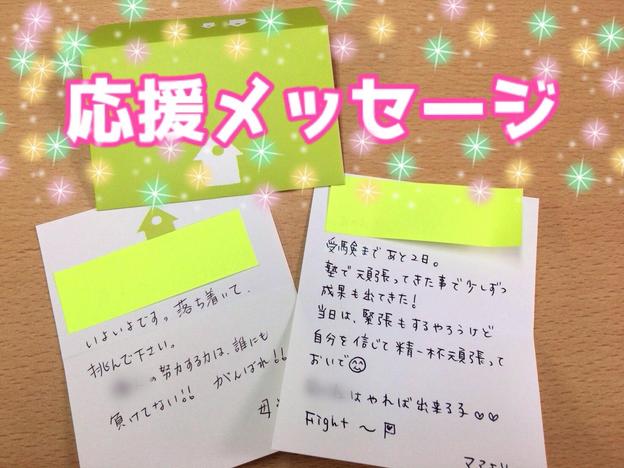 応援メッセージ
いよいよです。落ち着いて、
挑んで下さい。
の努力する力は、誰にも
負けてない!! がんばれ!!
母
受験まであと2日。
塾で頑張ってきた事で少しずつ
成果も出てきた!
当日は、緊張もするやろうけど
自分を信じて精一杯頑張って
おいで😊
はやれば出来る子♡♡
Fight 〜
ママより